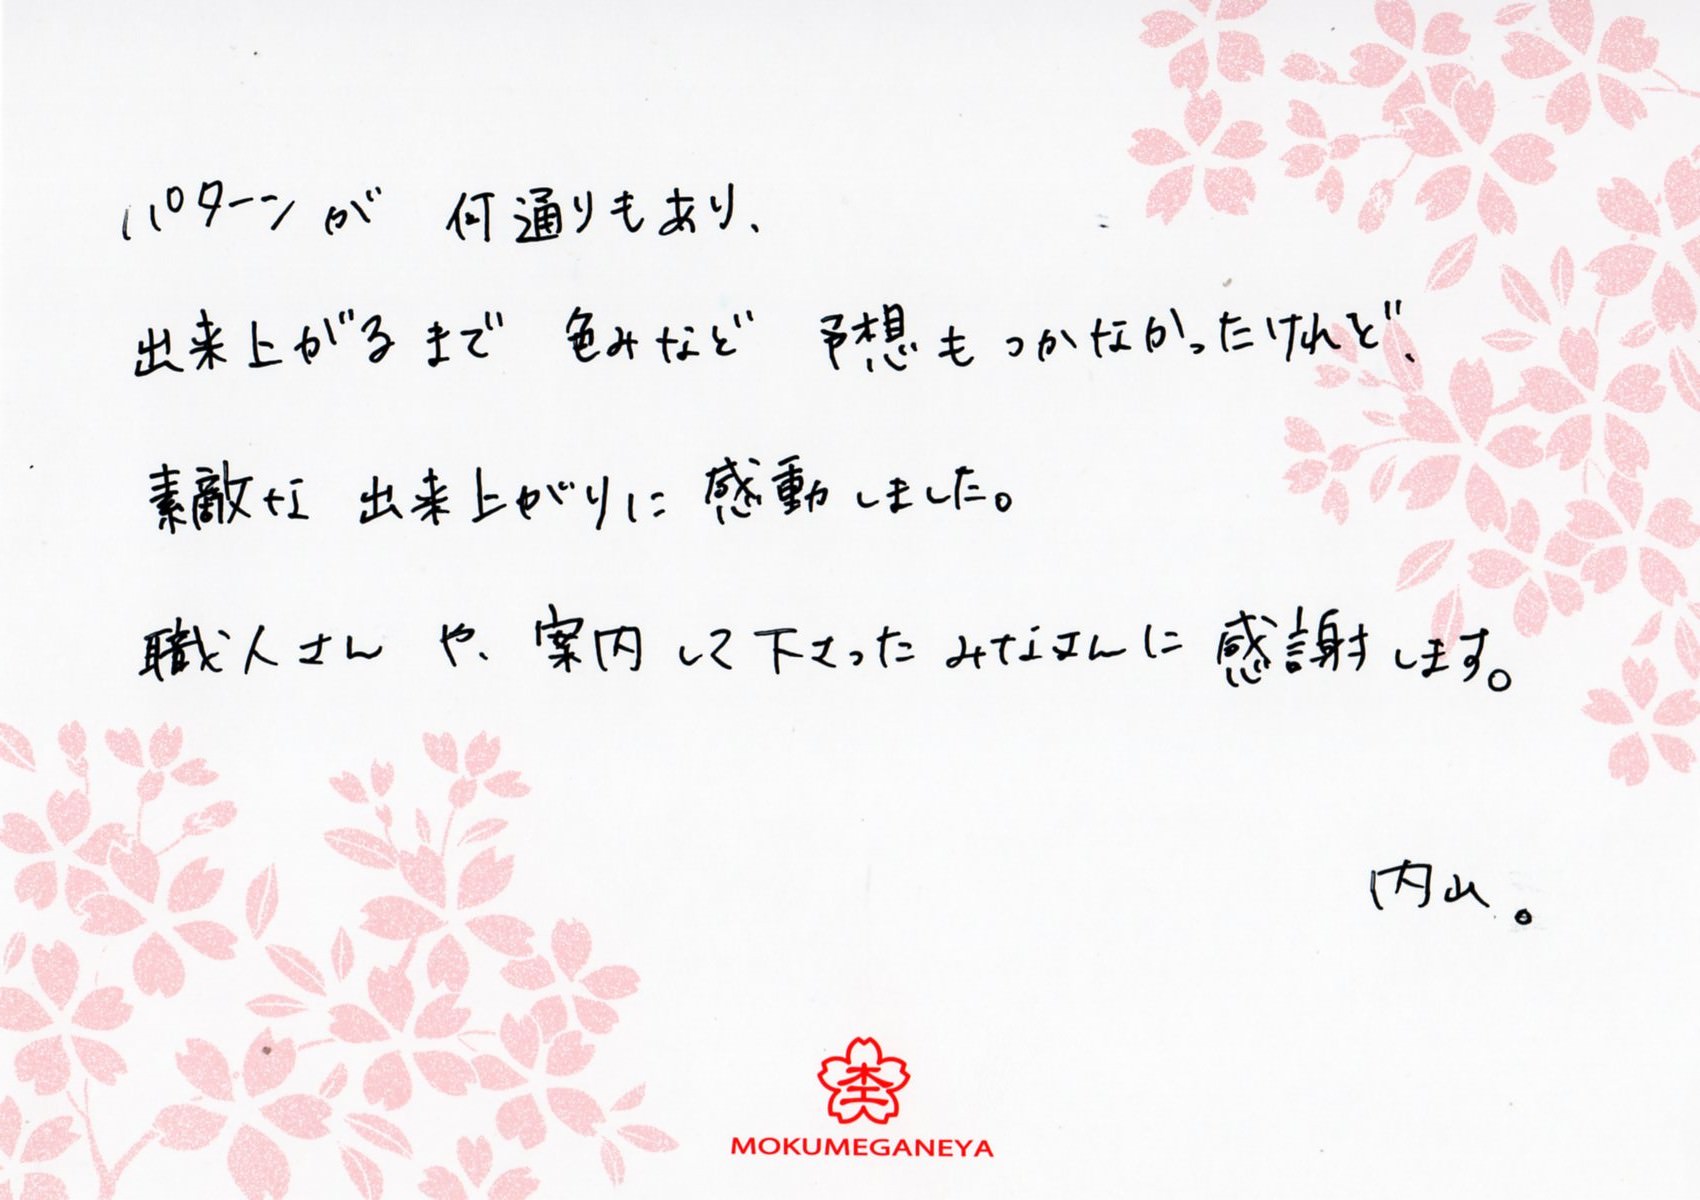 パターンが 何通りもあり、
出来上がるまで 色みなど 予想もつかなかったけれど、
素敵な 出来上がりに 感動しました。
職人さん や、案内して下さった みなさんに 感謝します。
内山。
MOKUMEGANEYA